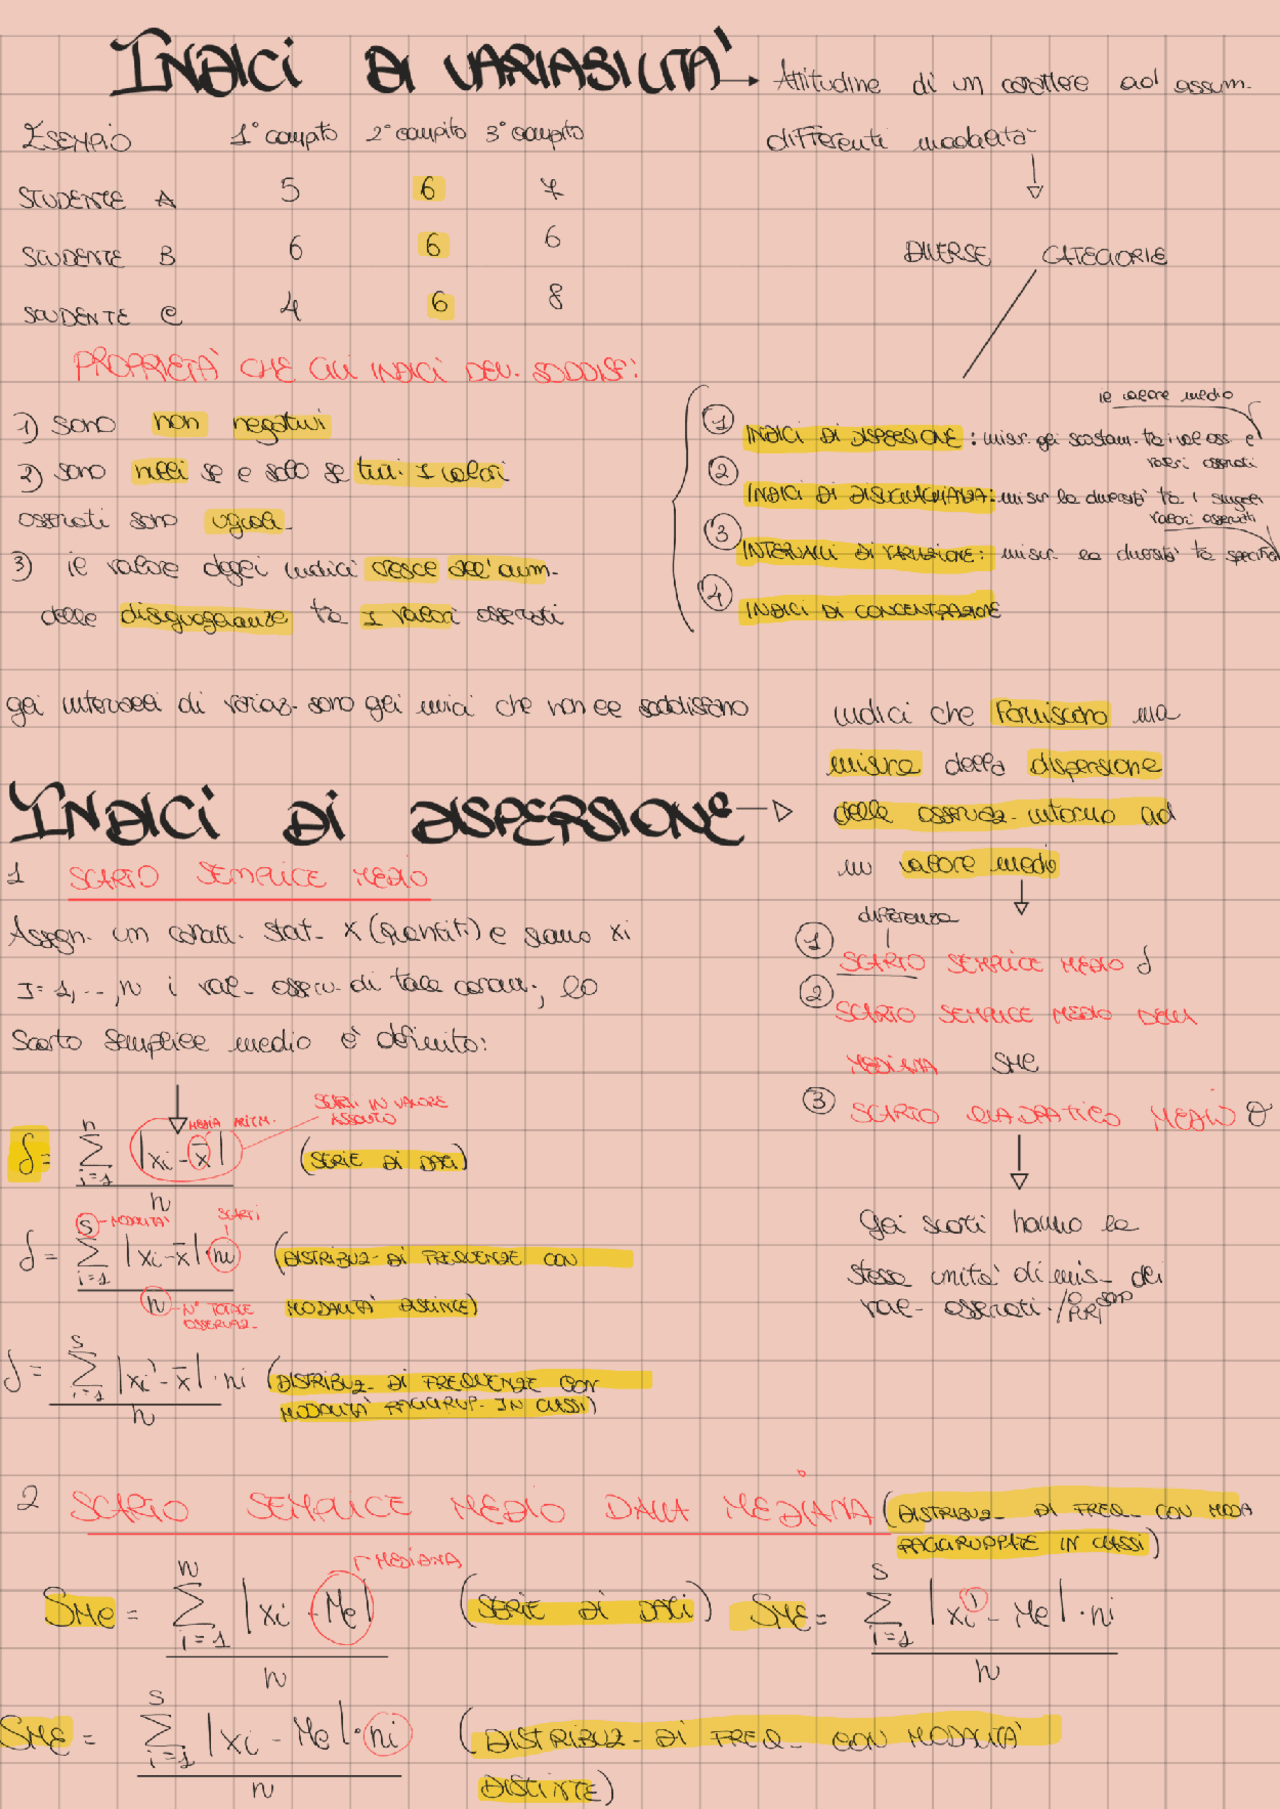 INDICI DI VARIABILITA' → Attitudine di un carattere ad assum.
differenti modalità
ESEMPIO 1° compito 2° compito 3° compito
STUDENTE A 5 6 7
STUDENTE B 6 6 6
STUDENTE C 4 6 8
DIVERSE CATEGORIE
PROPRIETÀ CHE GLI INDICI DEV. SODDISF:
1) sono non negativi
2) sono nulli se e solo se tutti I valori
osservati sono uguali
3) il valore degli indici cresce all'aum.
delle disuguaglianze tra I valori osservati
gli intervalli di variaz. sono gli unici che non le soddisfano
il valore medio
1 INDICI DI DISPERSIONE: misur. gli scostam. tra i val oss. e
valori osservati
2 INDICI DI DISUGUAGLIANZA: misur la diversità tra i singoli
valori osservati
3 INTERVALLI DI VARIAZIONE: misur. la diversità tra specifici
4 INDICI DI CONCENTRAZIONE
INDICI DI DISPERSIONE → indici che forniscono una
misura della dispersione
delle osservaz. intorno ad
un valore medio
differenza
1 SCARTO SEMPLICE MEDIO δ
2 SCARTO SEMPLICE MEDIO DALLA
MEDIANA SMe
3 SCARTO QUADRATICO MEDIO σ
gli scarti hanno la
stessa unità di mis. dei
val. osservati. /o sono
PURI
1 SCARTO SEMPLICE MEDIO
Assegn. un caratt. stat. X (quantit) e siano xi
I = 1, .., n i val. osserv. di tale caratt., lo
Scarto semplice medio è definito:
MEDIA ARITM. SCARTI IN VALORE
ASSOLUTO
δ = n Σ i=1 |xi - x̄| / n (SERIE DI DATI)
S - MODALITA' SCARTI
δ = S Σ i=1 |xi - x̄| · ni / n (DISTRIBUZ. DI FREQUENZE CON
MODALITA' DISTINTE)
n - N° TOTALE
OSSERVAZ.
δ = S Σ i=1 |xi' - x̄| · ni / n (DISTRIBUZ. DI FREQUENZE CON
MODALITA' RAGGRUP. IN CLASSI)
2 SCARTO SEMPLICE MEDIO DALLA MEDIANA (DISTRIBUZ. DI FREQ. CON MODA
RAGGRUPPATE IN CLASSI)
MEDIANA
SMe = n Σ i=1 |xi - Me| / n (SERIE DI DATI) SME = S Σ i=1 |xi' - Me| · ni / n
SME = S Σ i=1 |xi - Me| · ni / n (DISTRIBUZ. DI FREQ. CON MODALITA'
DISTINTE)